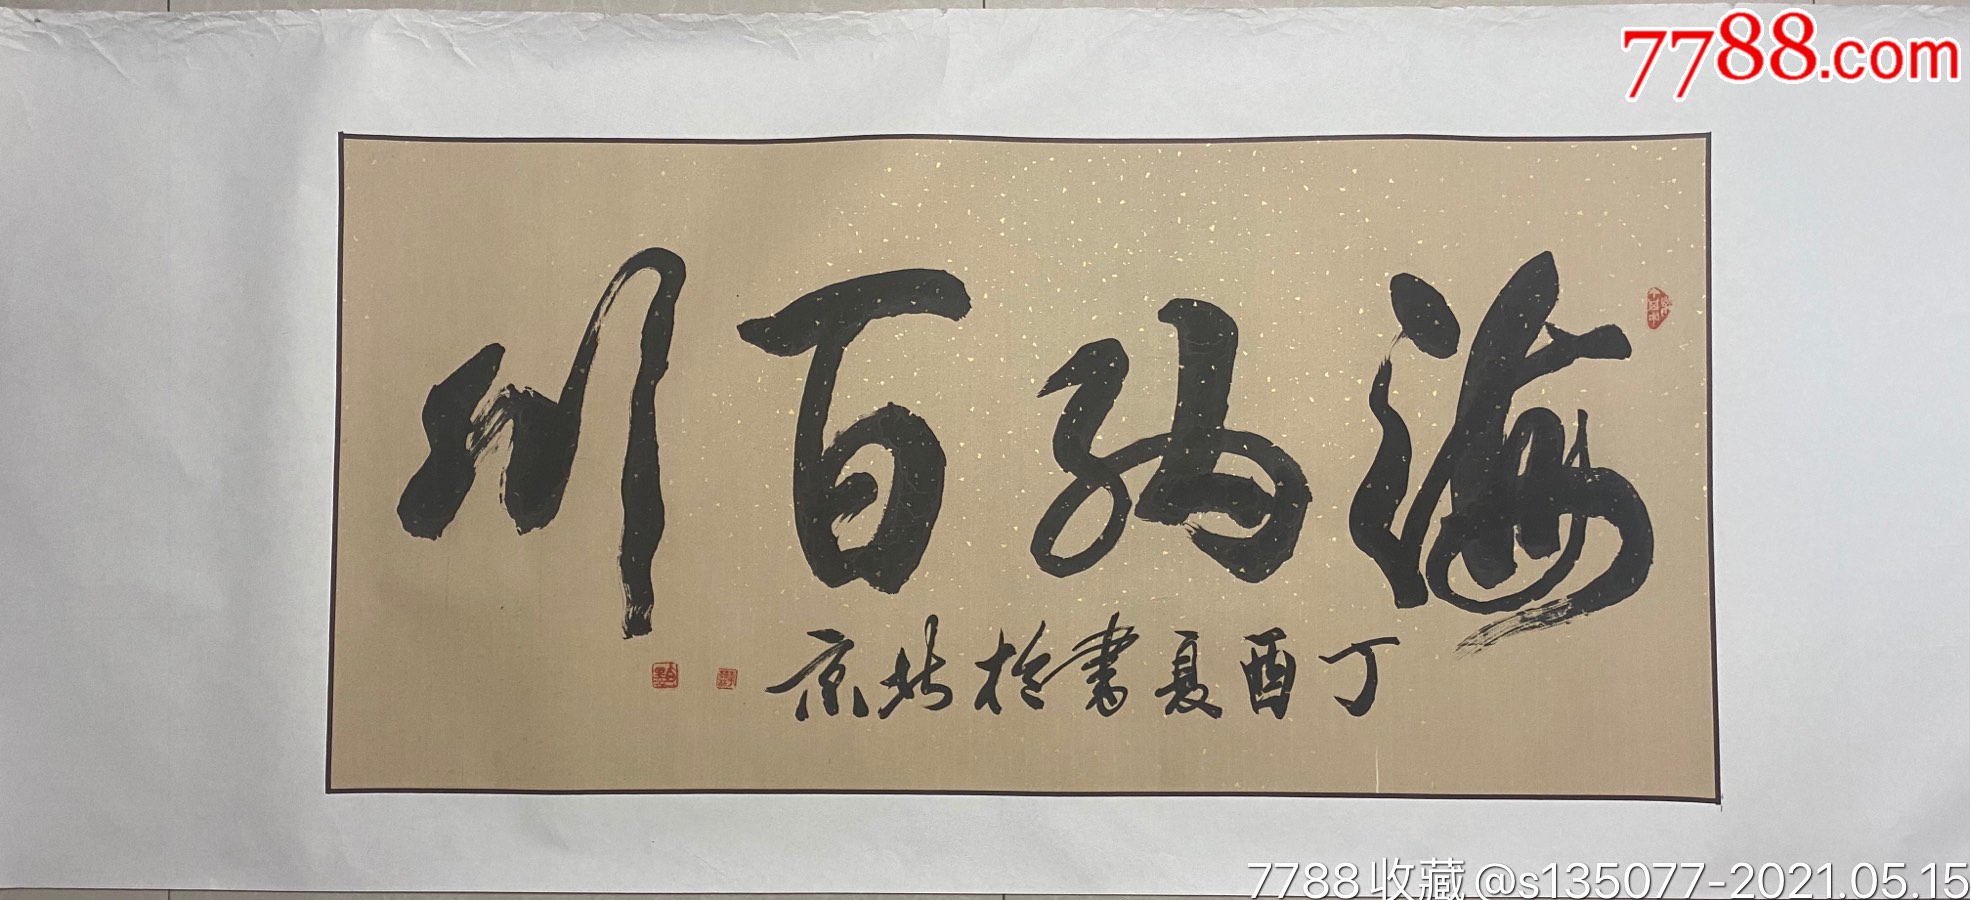 7788.com
海纳百川
丁酉夏书于北京
7788收藏@s135077-2021.05.15